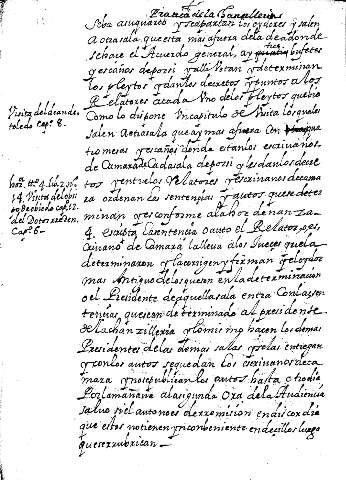 Pratica de la Chancilleria
se ba asu quarto y se apartan los oydores y salen
A otra sala que esta mas afuera de la de adonde
se hace el Acuerdo general, ay bufetes
y escaños de por si y alli Votan y determinan
los pleytos y dan los decretos y puntos a los
Relatores a cada Uno de los pleytos que bio
Como lo dispone Un capitulo de Visita los quales
salen A otra sala que ay mas afuera Con
mesas y escaños donde estan los escrivanos
de Camara de Cada sala de por si y les dan los decre
tos y entre los Relatores y escrivanos de cama
ra ordenan las sentencias y autos que se deter
minan y es conforme a la hordenanza
4. escrita la sentencia o auto el Relator, o es
crivano de Camara la lleva a los Jueces que la
determinaron y la corrigen y firman y el oydor
mas Antiguo de los que son en la determinacion
o el Presidente de aquella sala entra Con las sen
tencias que se an determinado al presidente
de la chanzilleria y lo mismo hacen los demas
Presidentes de las demas salas y se las entregan
y con los autos se quedan los escrivanos de ca
mara y no se publican los autos hasta otro dia
Por la mañana a la segunda Ora de la Audiencia
salvo si el auto no es de remision en discordia
que estos no tienen ynconbeniente en decillos luego
que se rubrican
Visita del de
toledo Cap. 8.
hor. 4. lib. 2.
14. Visita del obis
po de Oviedo cap. 12.
del Dotor
Cap. 6